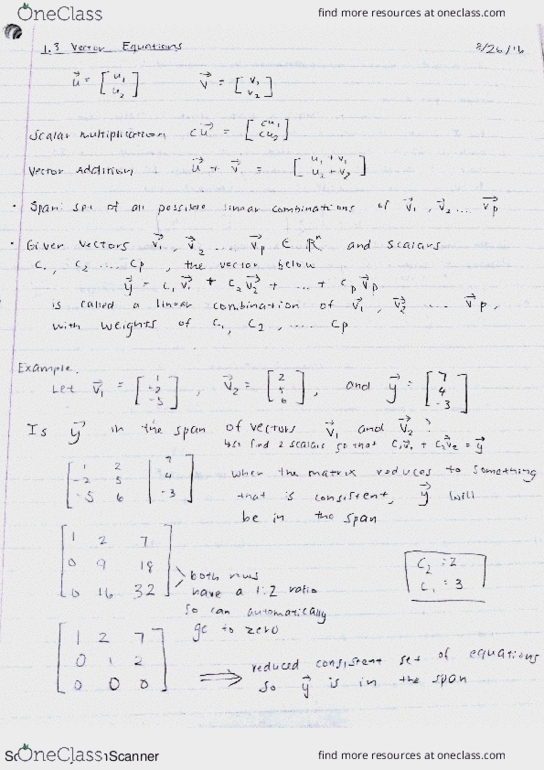 OneClass find more resources at oneclass.com
1.3 Vector Equations 8/26/16
u⃗ = [u₁ u₂] v⃗ = [v₁ v₂]
Scalar multiplication cu⃗ = [cu₁ cu₂]
Vector Addition u⃗ + v⃗ = [u₁ + v₁ u₂ + v₂]
• Span: set of all possible linear combinations of v⃗₁, v⃗₂ ... v⃗p
• Given vectors v⃗₁, v⃗₂ ... v⃗p ∈ ℝⁿ and scalars
c₁, c₂ .... cp, the vector below
y⃗ = c₁v⃗₁ + c₂v⃗₂ + ... + cpv⃗p
is called a linear combination of v⃗₁, v⃗₂ .... v⃗p,
with weights of c₁, c₂, .... cp
Example.
Let v⃗₁ = [1 -2 -5], v⃗₂ = [2 5 6], and y⃗ = [7 4 -3]
Is y⃗ in the span of vectors v⃗₁ and v⃗₂?
find 2 scalars so that c₁v⃗₁ + c₂v⃗₂ = y⃗
[1 2 | 7
-2 5 | 4
-5 6 | -3]
when the matrix reduces to something
that is consistent, y⃗ will
be in the span
[1 2 7
0 9 18
0 16 32]
both rows
have a 1:2 ratio
so can automatically
go to zero
c₂ = 2
c₁ = 3
[1 2 7
0 1 2
0 0 0]
⟹ reduced consistent set of equations
so y⃗ is in the span
OneClass Scanner find more resources at oneclass.com